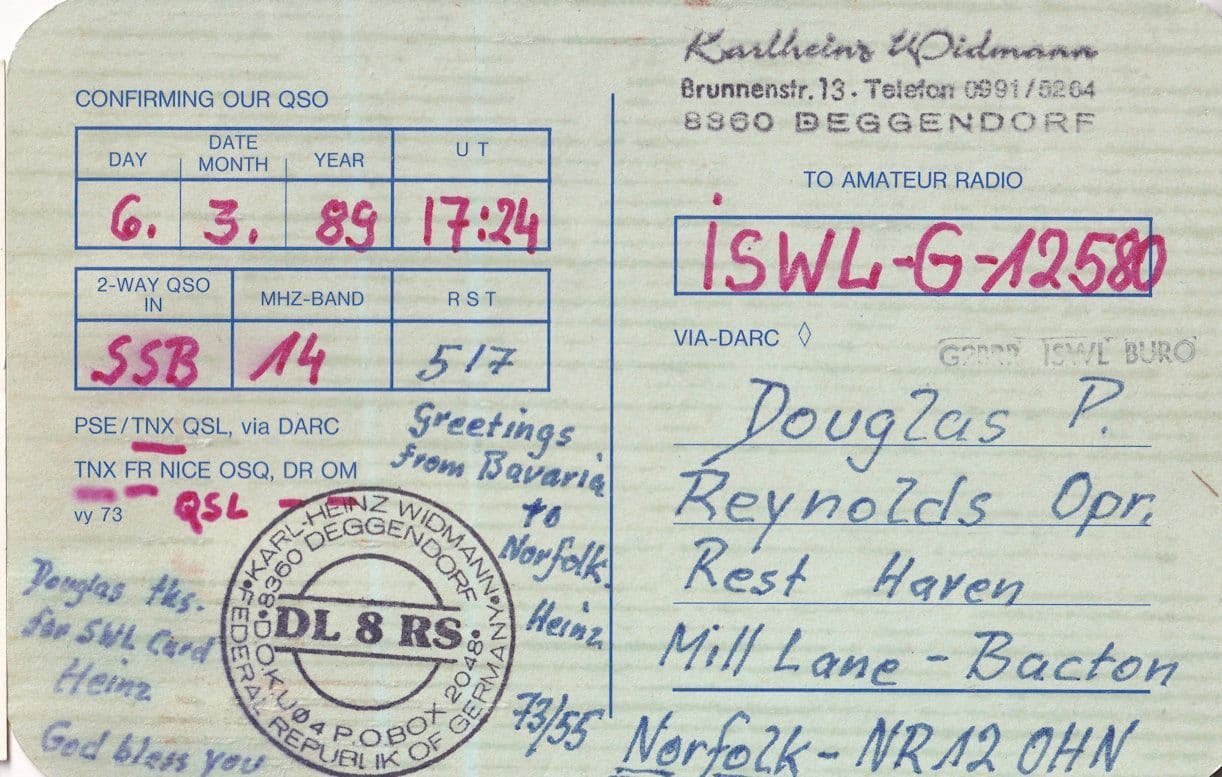 Karlheinz Widmann
Brunnenstr. 13 · Telefon 0991/5264
8360 DEGGENDORF
CONFIRMING OUR QSO
DATE
DAY MONTH YEAR
UT
6. 3. 89 17:24
2-WAY QSO IN
MHZ-BAND
RST
SSB 14 517
PSE/TNX QSL, via DARC
TNX FR NICE OSQ, DR OM
QSL
vy 73
Greetings
from Bavaria
to
Norfolk.
Heinz
73/55
Douglas tks.
for SWL Card
Heinz
God bless you
KARL-HEINZ WIDMANN · 8360 DEGGENDORF
DL 8 RS
DOK U04 P.O.BOX 2048
FEDERAL REPUBLIK OF GERMANY
TO AMATEUR RADIO
iSWL-G-12580
VIA-DARC ◊
ISWL BURO
Douglas P.
Reynolds Opr.
Rest Haven
Mill Lane - Bacton
Norfolk - NR12 OHN